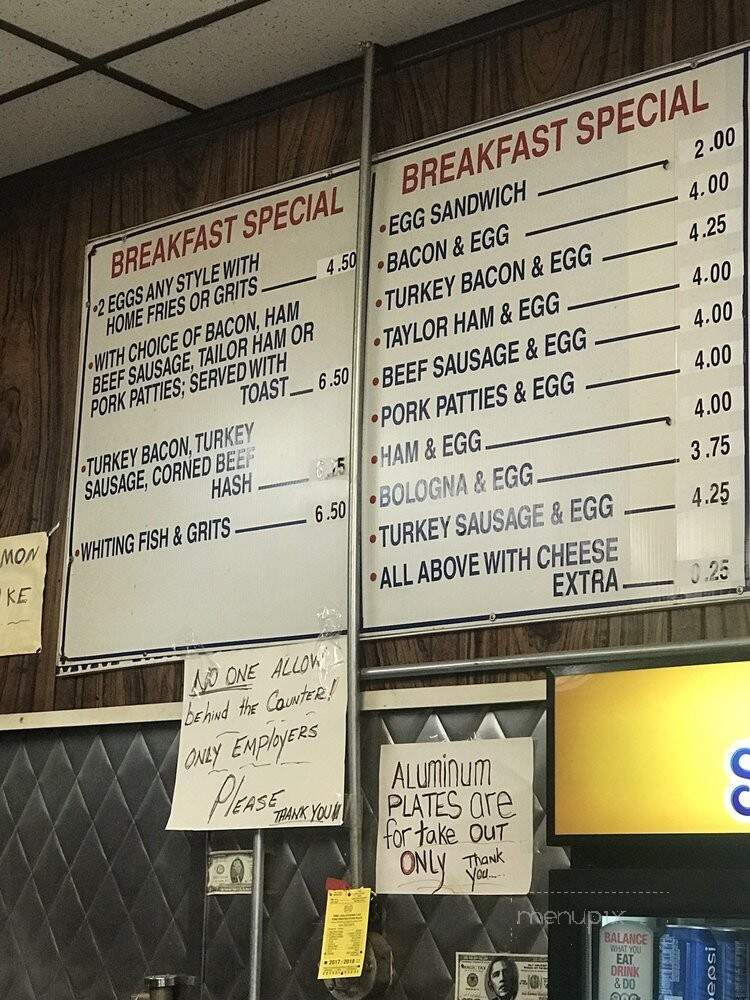 BREAKFAST SPECIAL
•2 EGGS ANY STYLE WITH
HOME FRIES OR GRITS 4.50
•WITH CHOICE OF BACON, HAM
BEEF SAUSAGE, TAILOR HAM OR
PORK PATTIES; SERVED WITH
TOAST 6.50
•TURKEY BACON, TURKEY
SAUSAGE, CORNED BEEF
HASH
•WHITING FISH & GRITS 6.50
BREAKFAST SPECIAL
•EGG SANDWICH 2.00
•BACON & EGG 4.00
•TURKEY BACON & EGG 4.25
•TAYLOR HAM & EGG 4.00
•BEEF SAUSAGE & EGG 4.00
•PORK PATTIES & EGG 4.00
•HAM & EGG 4.00
•BOLOGNA & EGG 3.75
•TURKEY SAUSAGE & EGG 4.25
•ALL ABOVE WITH CHEESE
EXTRA 0.25
MON
KE
NO ONE ALLOW
behind the Counter!
ONLY EMPLOYERS
PLEASE
THANK YOU!!
ALuminum
PLATES are
for take OUT
ONLY Thank
You....
S
menupix
2017/2018
BALANCE
WHAT YOU
EAT
DRINK
& DO
pepsi